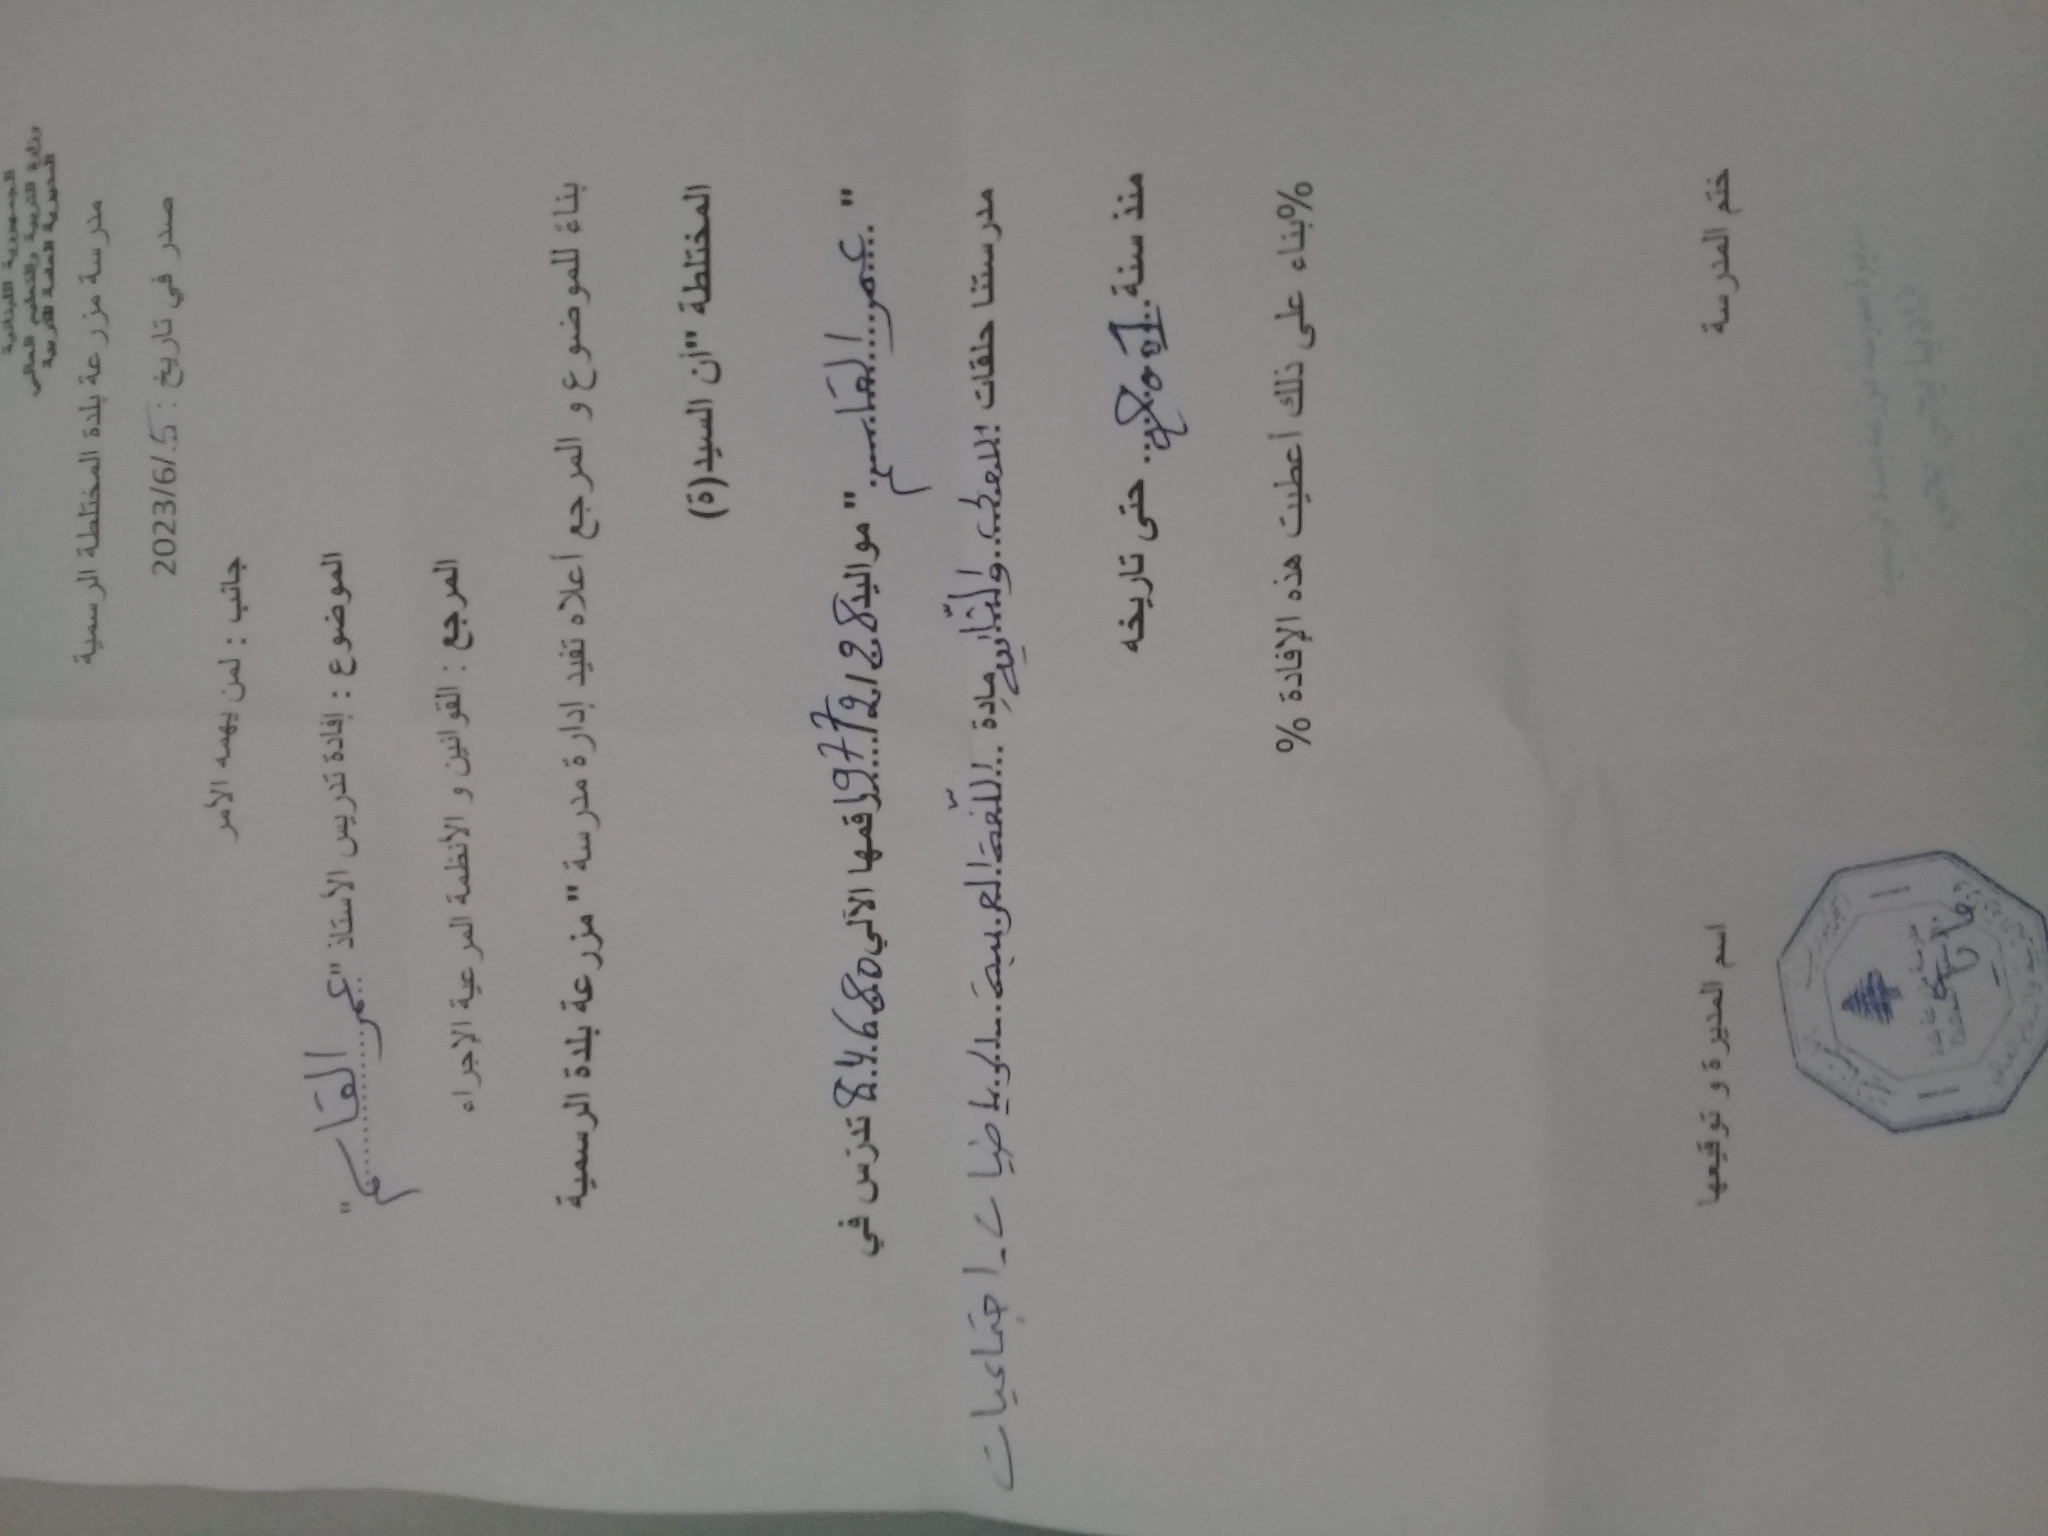 الجمهورية اللبنانية
وزارة التربية والتعليم العالي
المديرية العامة للتربية
مدرسة مزرعة بلدة المختلطة الرسمية
صدر في تاريخ : 2023/6/.5
جانب : لمن يهمه الأمر
الموضوع : إفادة تدريس الأستاذ "عمر القاسم"
المرجع : القوانين و الأنظمة المرعية الإجراء
بناءً للموضوع و المرجع أعلاه تفيد إدارة مدرسة "مزرعة بلدة الرسمية
المختلطة "أن السيد(ة)
"عمر القاسم" مواليد 1977/2/28 رقمها الآلي 84680 تدرّس في
مدرستنا حلقات الأولى والثانية مادة اللّغة العربية - رياضيات - اجتماعيات
منذ سنة حتى تاريخه
%بناء على ذلك أعطيت هذه الإفادة %
ختم المدرسة اسم المديرة و توقيعها